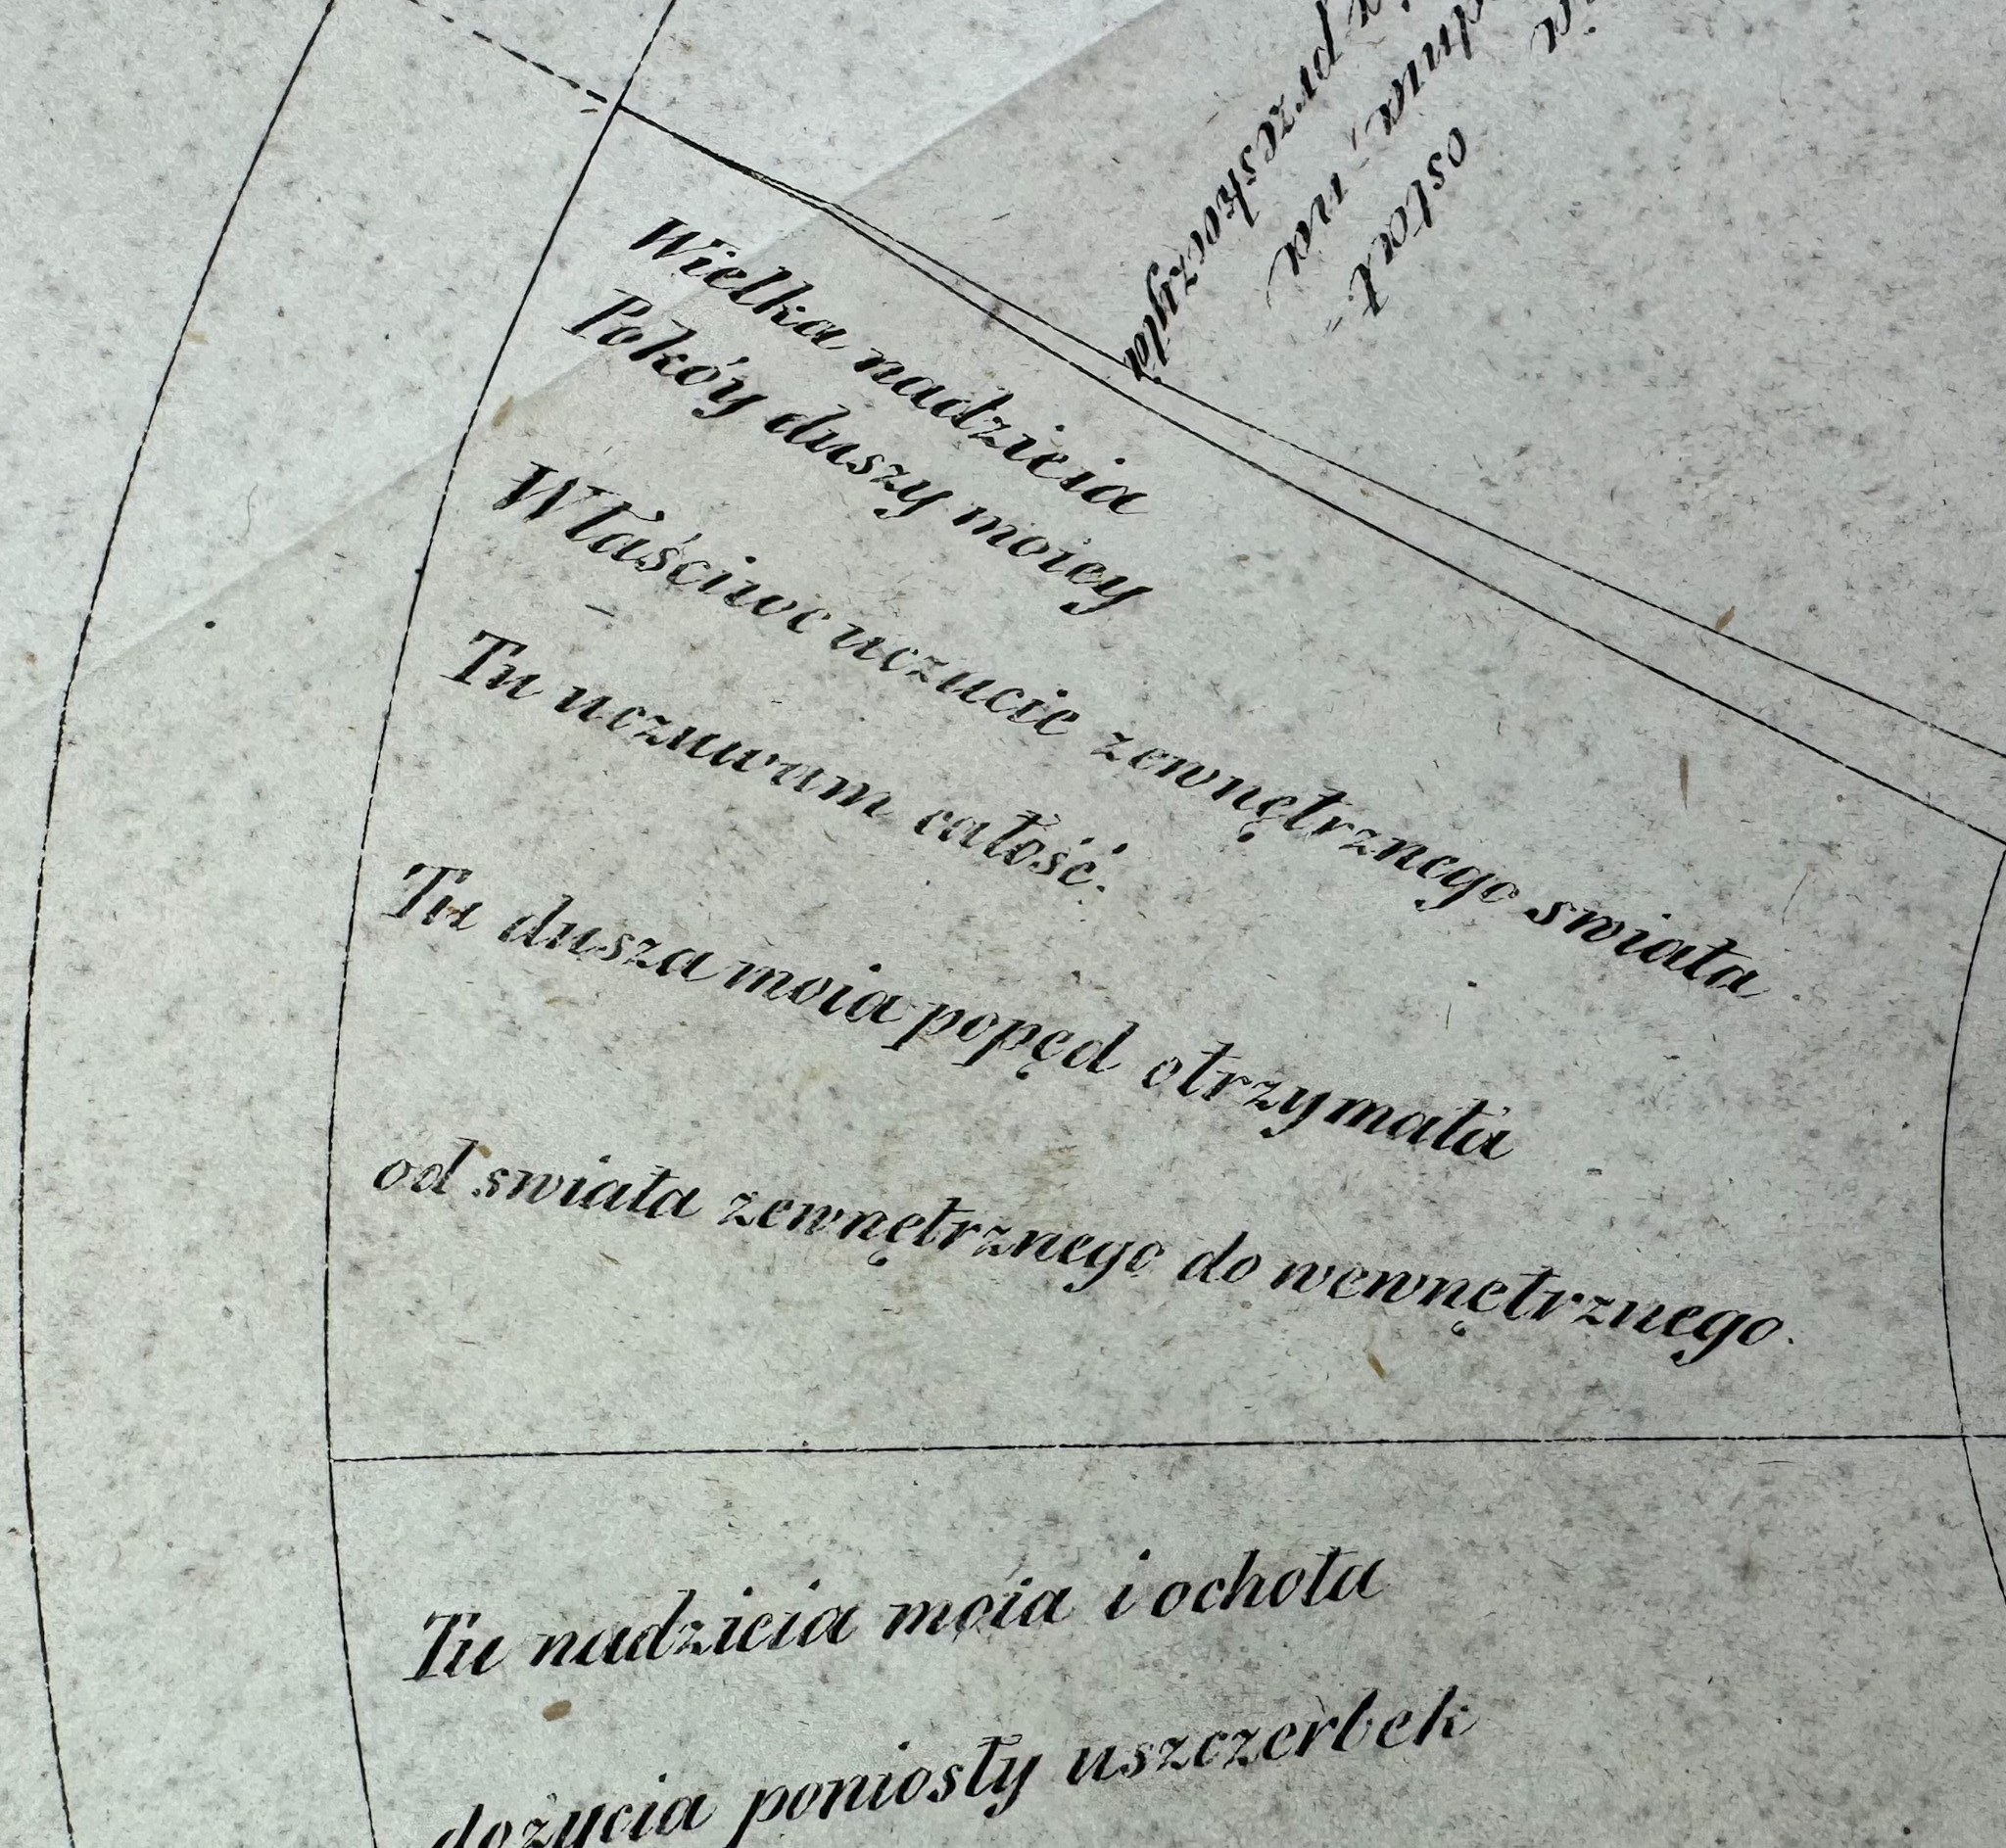 przeskoczyła
na
ostat=
Wielka nadzieia
Pokóy duszy moiey
Właściwe uczucie zewnętrznego swiata.
Tu uczuwam całość.
Tu dusza moia popęd otrzymała
od swiata zewnętrznego do wewnętrznego.
Tu nadzieia moia i ochota
do życia poniosły uszczerbek